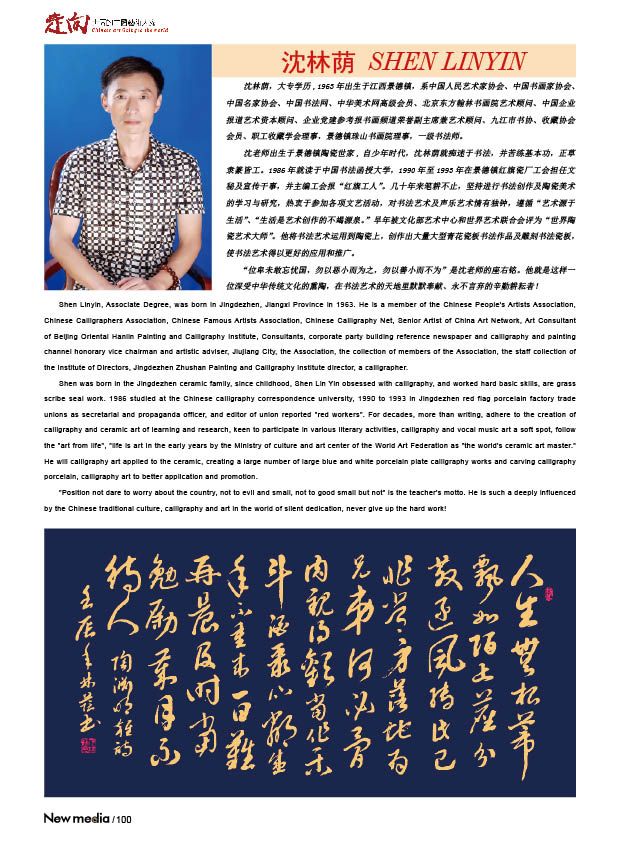 走向
Chinese art Going to the world
沈林荫 SHEN LINYIN
沈林荫，大专学历，1963年出生于江西景德镇，系中国人民艺术家协会、中国书画家协会、
中国名家协会、中国书法网、中华美术网高级会员、北京东方翰林书画院艺术顾问、中国企业
报道艺术资本顾问、企业党建参考报书画频道荣誉副主席兼艺术顾问、九江市书协、收藏协会
会员、职工收藏学会理事，景德镇珠山书画院理事，一级书法师。
沈老师出生于景德镇陶瓷世家，自少年时代，沈林荫就痴迷于书法，并苦练基本功，正草
隶篆皆工。1986年就读于中国书法函授大学，1990年至1993年在景德镇红旗瓷厂工会担任文
秘及宣传干事，并主编工会报“红旗工人”。几十年来笔耕不止，坚持进行书法创作及陶瓷美术
的学习与研究，热衷于参加各项文艺活动，对书法艺术及声乐艺术情有独钟，遵循“艺术源于
生活”、“生活是艺术创作的不竭源泉。”早年被文化部艺术中心和世界艺术联合会评为“世界陶
瓷艺术大师”。他将书法艺术运用到陶瓷上，创作出大量大型青花瓷板书法作品及雕刻书法瓷板，
使书法艺术得以更好的应用和推广。
“位卑未敢忘忧国，勿以恶小而为之，勿以善小而不为”是沈老师的座右铭。他就是这样一
位深受中华传统文化的熏陶，在书法艺术的天地里默默奉献、永不言弃的辛勤耕耘者！
Shen Linyin, Associate Degree, was born in Jingdezhen, Jiangxi Province in 1963. He is a member of the Chinese People's Artists Association,
Chinese Calligraphers Association, Chinese Famous Artists Association, Chinese Calligraphy Net, Senior Artist of China Art Network, Art Consultant
of Beijing Oriental Hanlin Painting and Calligraphy Institute, Consultants, corporate party building reference newspaper and calligraphy and painting
channel honorary vice chairman and artistic adviser, Jiujiang City, the Association, the collection of members of the Association, the staff collection of
the Institute of Directors, Jingdezhen Zhushan Painting and Calligraphy Institute director, a calligrapher.
Shen was born in the Jingdezhen ceramic family, since childhood, Shen Lin Yin obsessed with calligraphy, and worked hard basic skills, are grass
scribe seal work. 1986 studied at the Chinese calligraphy correspondence university, 1990 to 1993 in Jingdezhen red flag porcelain factory trade
unions as secretarial and propaganda officer, and editor of union reported "red workers". For decades, more than writing, adhere to the creation of
calligraphy and ceramic art of learning and research, keen to participate in various literary activities, calligraphy and vocal music art a soft spot, follow
the "art from life", "life is art in the early years by the Ministry of culture and art center of the World Art Federation as "the world's ceramic art master."
He will calligraphy art applied to the ceramic, creating a large number of large blue and white porcelain plate calligraphy works and carving calligraphy
porcelain, calligraphy art to better application and promotion.
"Position not dare to worry about the country, not to evil and small, not to good small but not" is the teacher's motto. He is such a deeply influenced
by the Chinese traditional culture, calligraphy and art in the world of silent dedication, never give up the hard work!
人生無根蒂
飘如陌上尘分
散逐风转此已
非常身落地为
兄弟何必骨
肉亲得歡当作乐
斗酒聚比邻盛
年不重来一日難
再晨及时当
勉励岁月不
待人 陶渊明雜诗
壬辰年林荫书
New media / 100